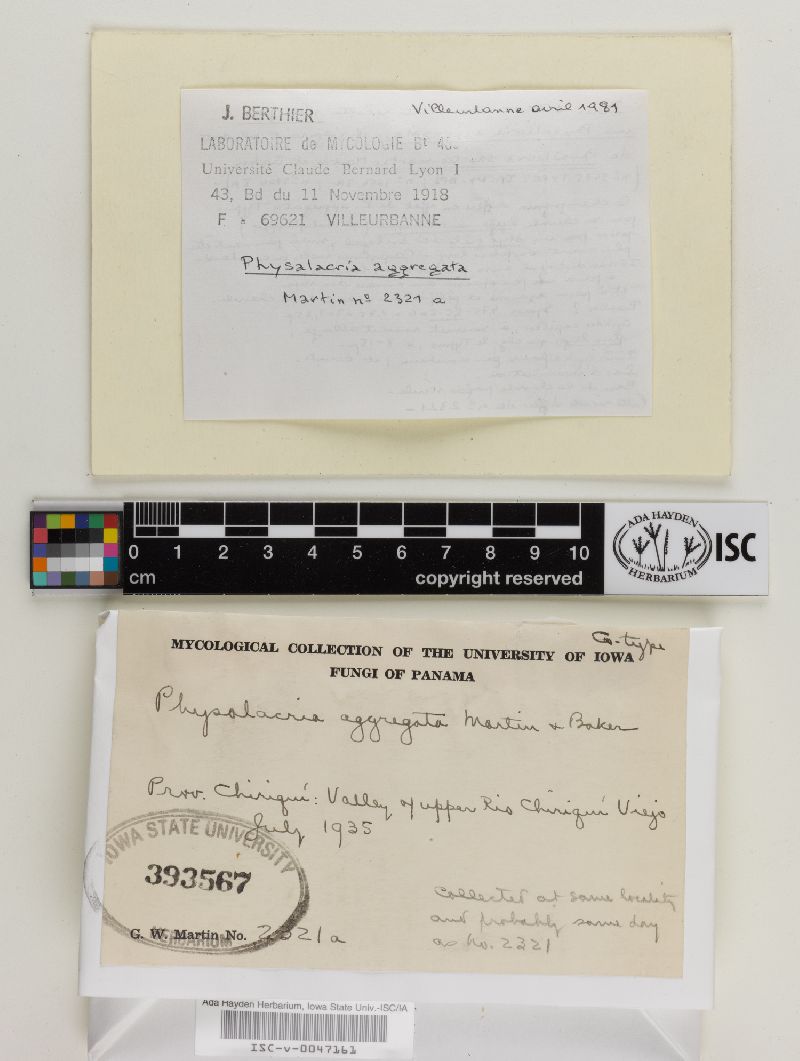 J. BERTHIER
Villeurbanne avril 1981
LABORATOIRE de MYCOLOGIE Bt 40
Université Claude Bernard Lyon I
43, Bd du 11 Novembre 1918
F - 69621 VILLEURBANNE
Physalacria aggregata
Martin nº 2321 a
0 1 2 3 4 5 6 7 8 9 10
cm
copyright reserved
ADA HAYDEN
HERBARIUM
ISC
Co-type
MYCOLOGICAL COLLECTION OF THE UNIVERSITY OF IOWA
FUNGI OF PANAMA
Physalacria aggregata Martin & Baker
Prov. Chiriquí: Valley of upper Rio Chiriquí Viejo
July 1935
IOWA STATE UNIVERSITY
393567
HERBARIUM
collected at same locality
and probably same day
as No. 2321
G. W. Martin No. 2321a
Ada Hayden Herbarium, Iowa State Univ.-ISC/IA
ISC-v-0047161